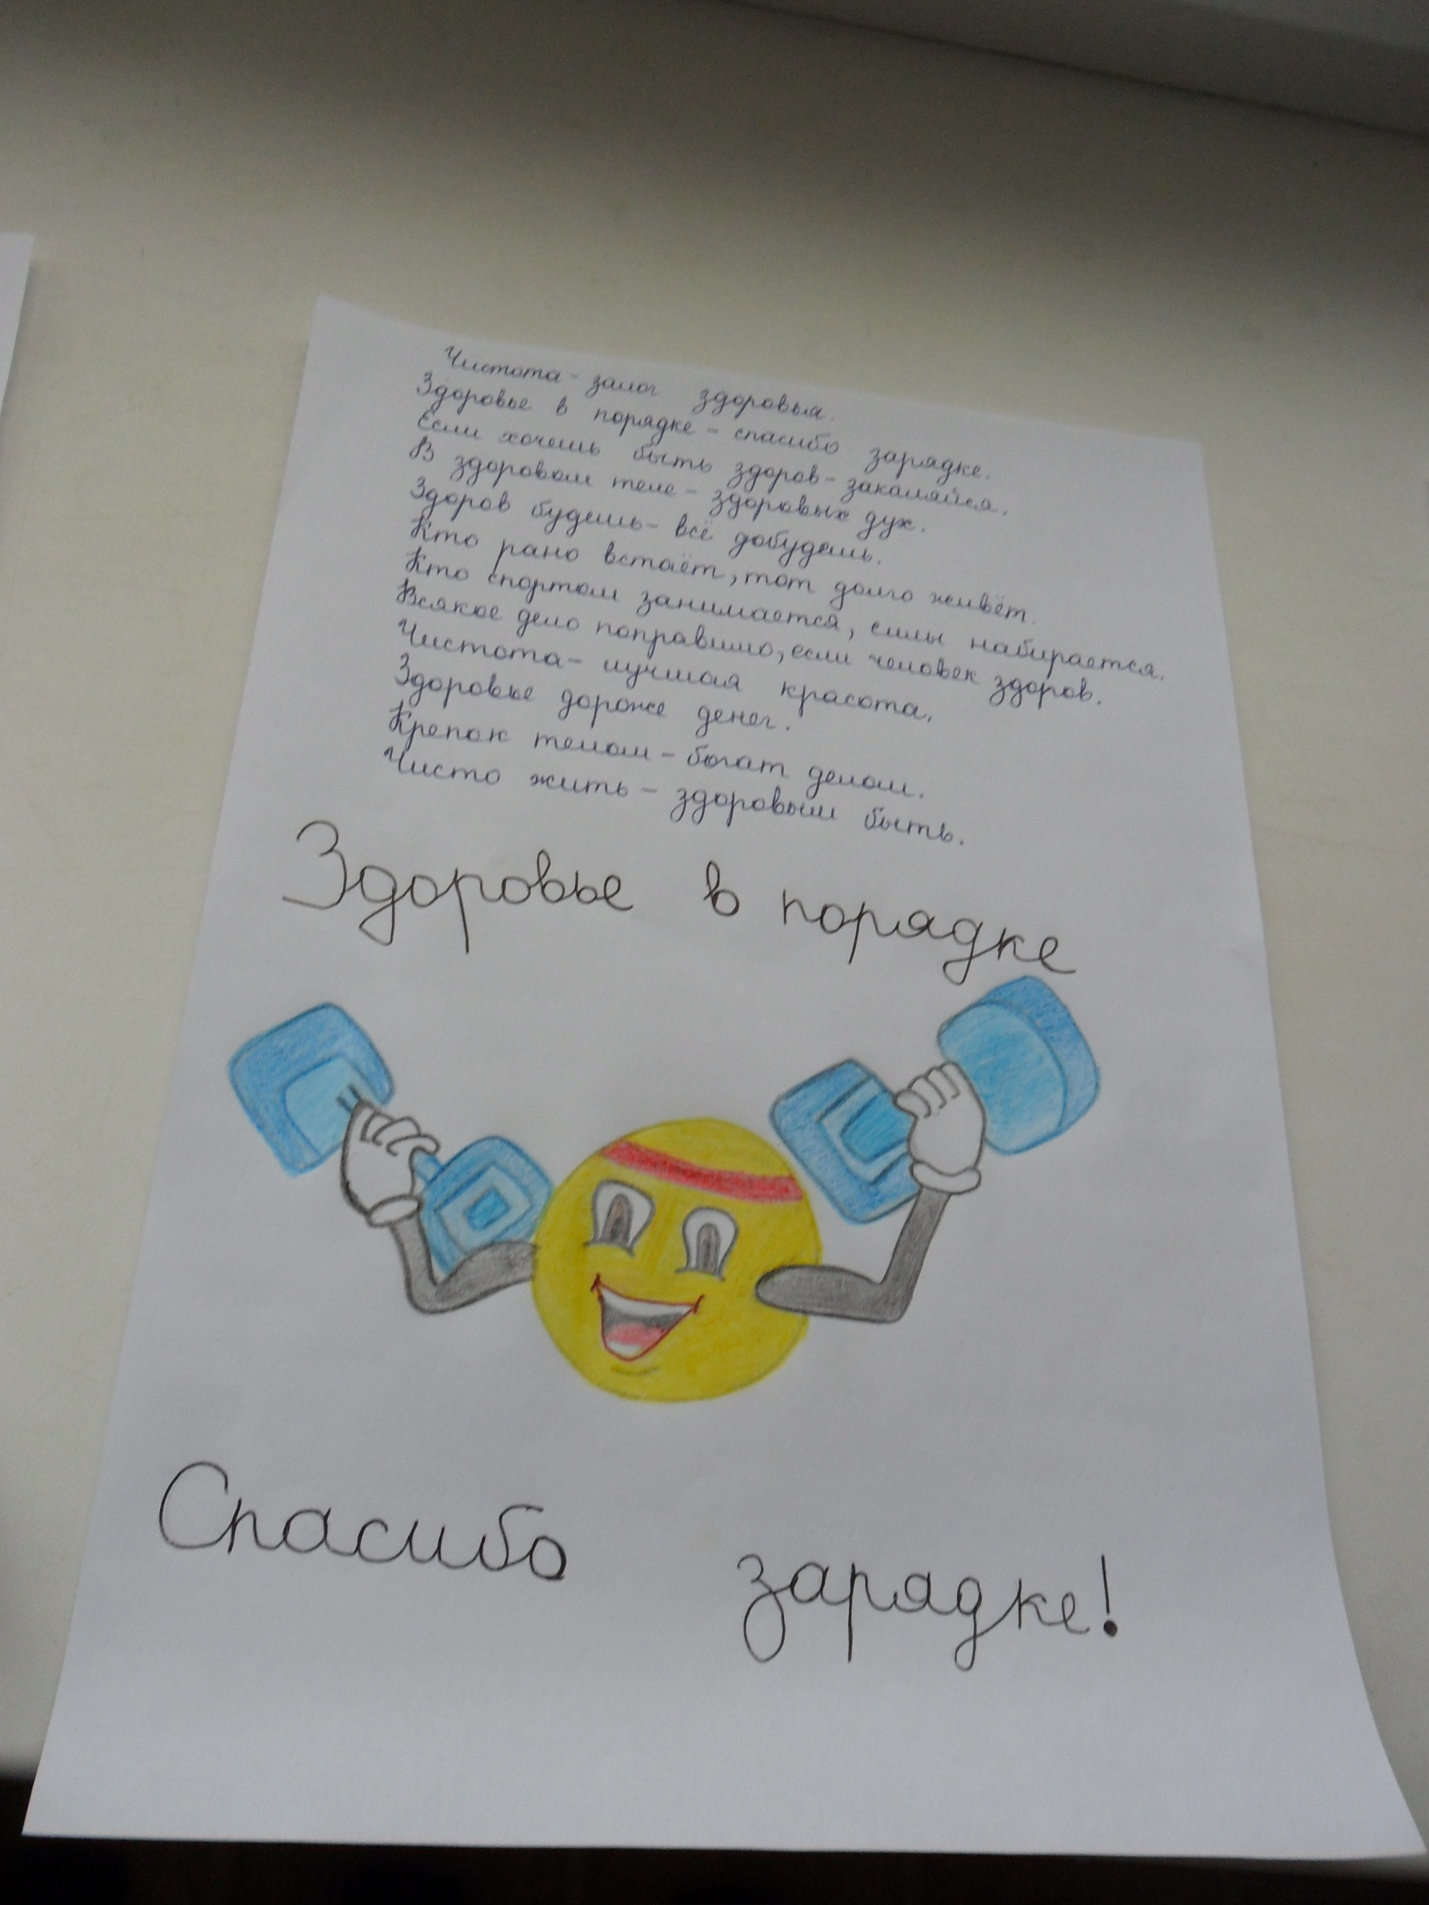 Чистота - залог здоровья.
Здоровье в порядке - спасибо зарядке.
Если хочешь быть здоров - закаляйся.
В здоровом теле - здоровых дух.
Здоров будешь - всё добудешь.
Кто рано встаёт, тот долго живёт.
Кто спортом занимается, силы набирается.
Всякое дело поправимо, если человек здоров.
Чистота - лучшая красота.
Здоровье дороже денег.
Крепок телом - богат делом.
Чисто жить - здоровым быть.
Здоровье в порядке
Спасибо зарядке!